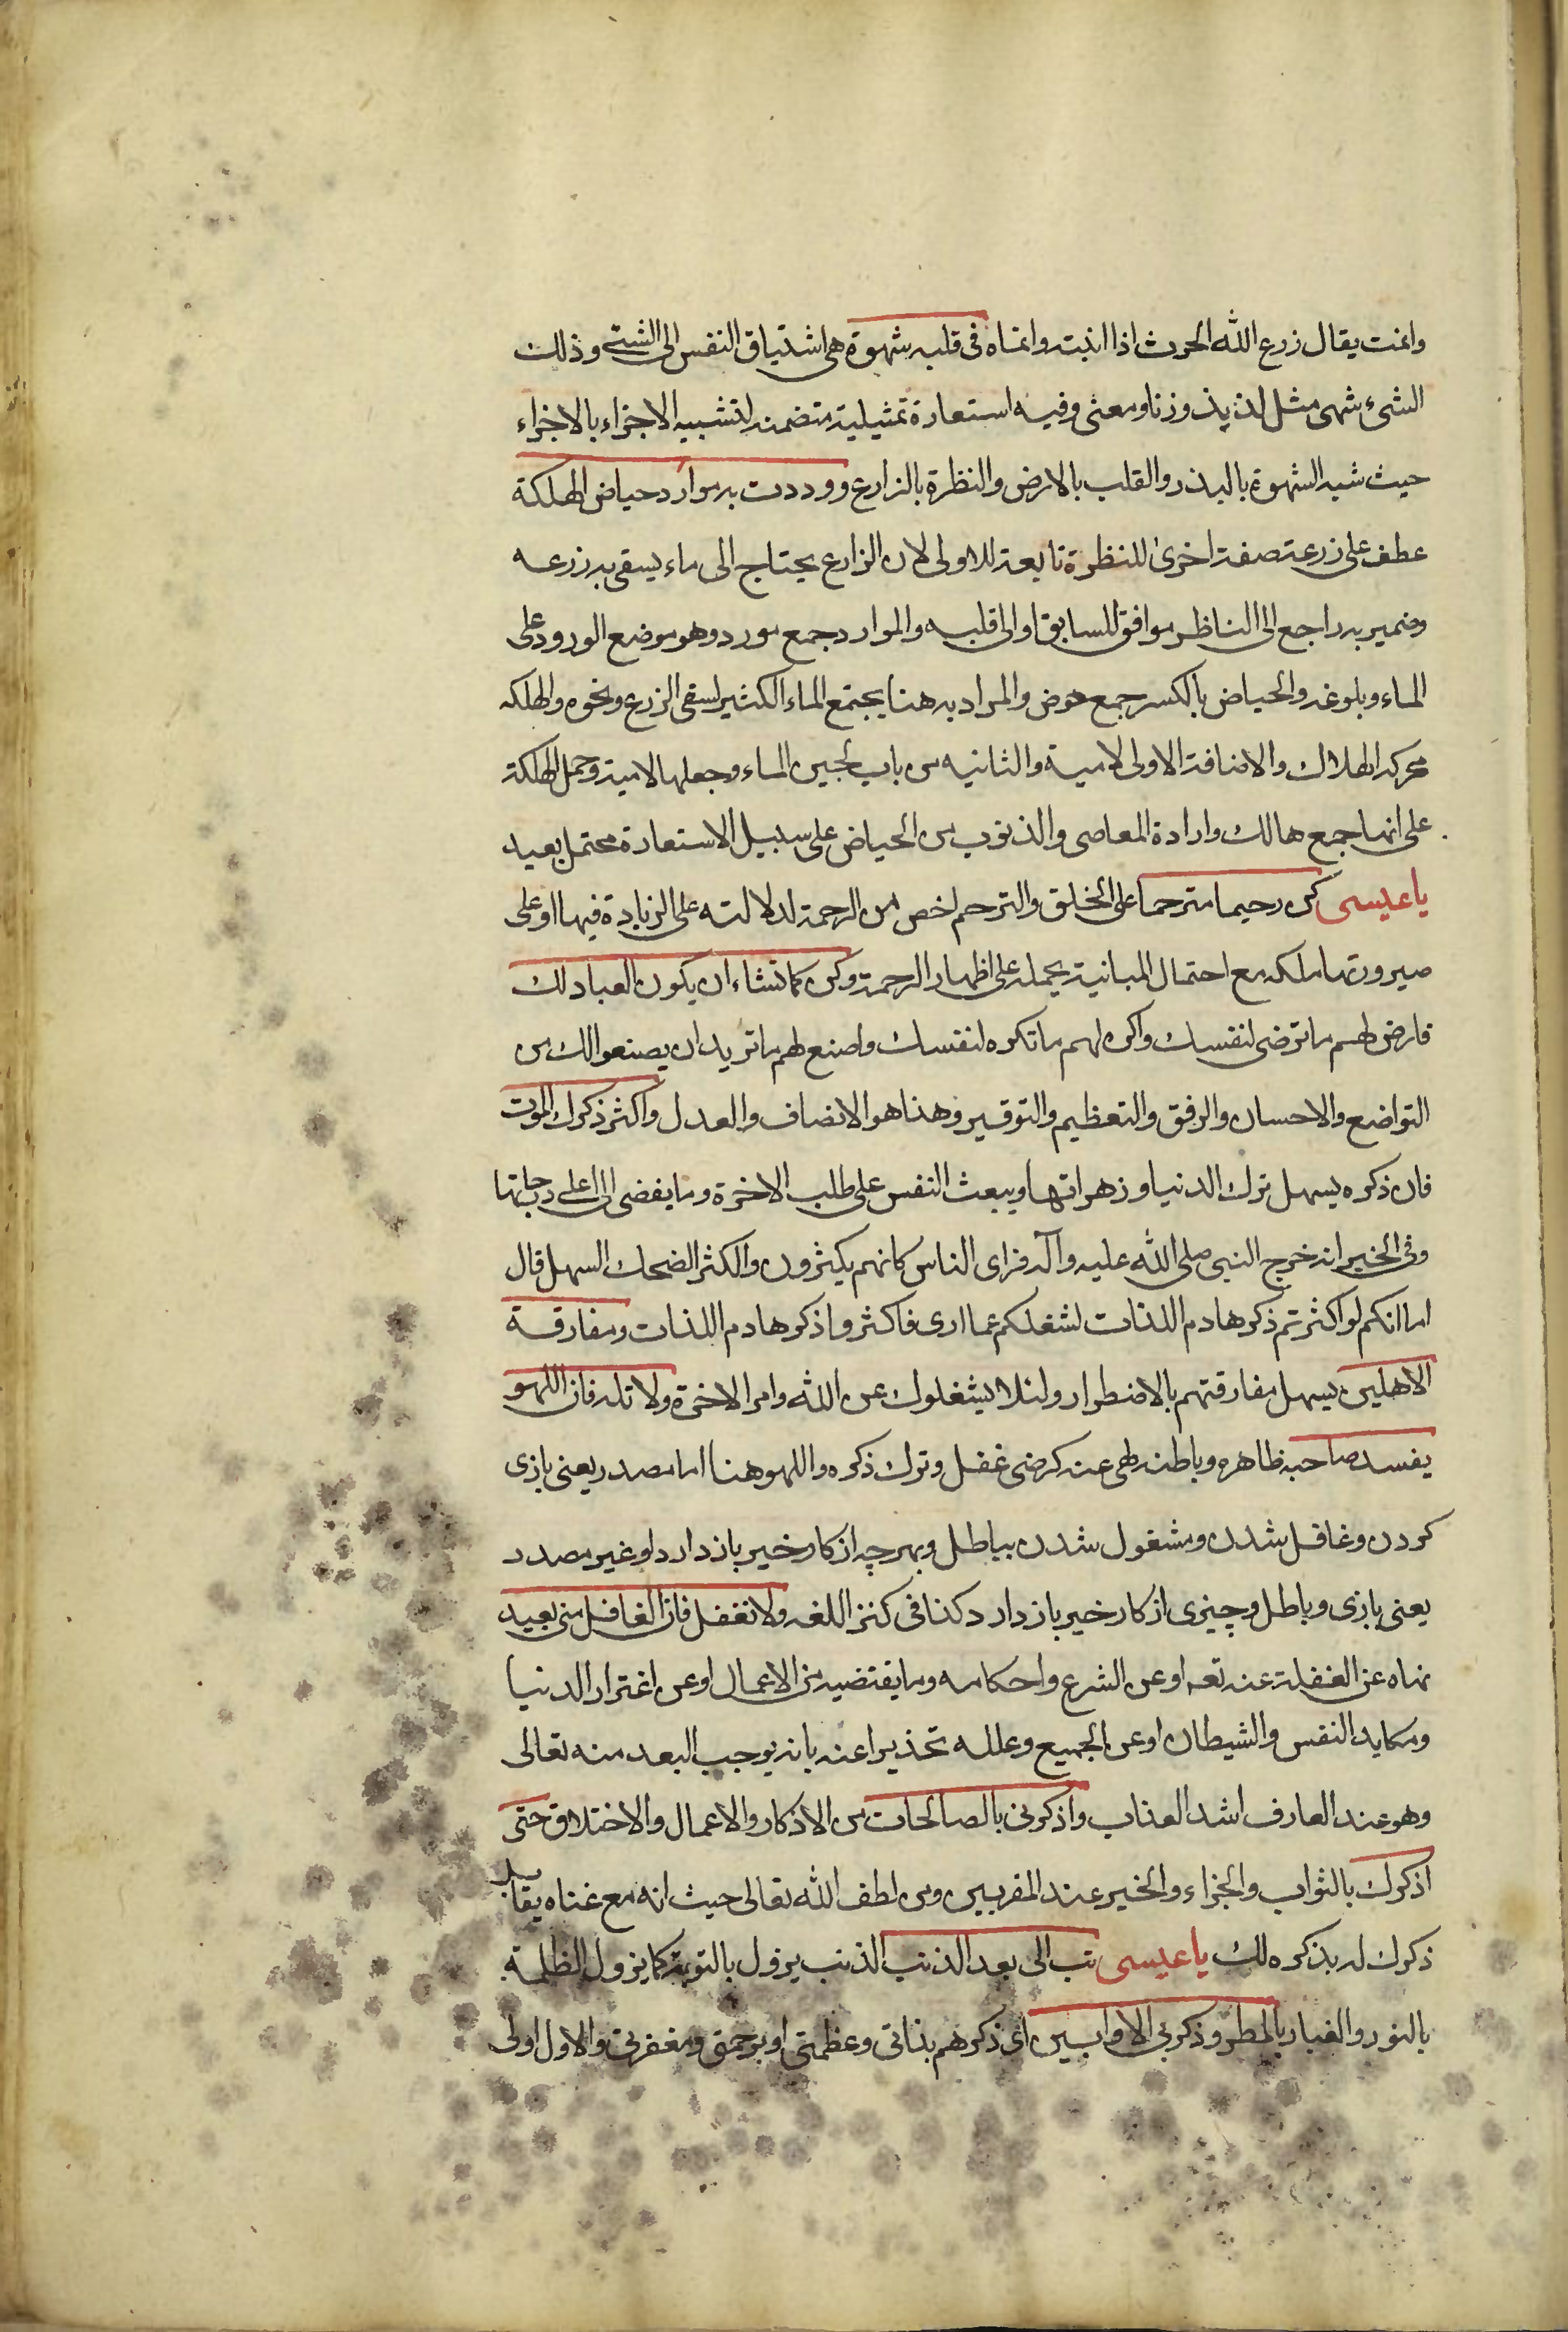 وانمت يقال زرع الله الحرث اذا انبته وانماه في قلبه شهوة هي اشتياق النفس الى الشئ وذلك
الشئ شهى مثل لذيذ وزنا ومعنى وفيه استعارة تمثيلية متضمنه لتشبيه الاجزاء بالاجزاء
حيث شبه الشهوة بالبذر والقلب بالارض والنظرة بالزارع ووردت به موارد حياض الهلكة
عطف على زرعت صفة اخرى للنظرة تابعة للاولى لان الزارع يحتاج الى ماء يسقى به زرعه
وضمير به راجع الى الناظر موافق للسابق او الى قلبه والموارد جمع مورد وهو موضع الورود على
الماء وبلوغه والحياض بالكسر جمع حوض والمراد به هنا يجتمع الماء الكثير لسقى الزرع ونحوه والهلكه
محركه الهلاك والاضافة الاولى لامية والثانيه من باب لجين الماء وجعلها لامية وحمل الهلكة
على انها جمع هالك وارادة المعاصى والذنوب من الحياض على سبيل الاستعارة محتمل بعيد
يا عيسى كن رحيما مترحما على الخلق والترحم اخص من الرحمة لدلالته على الزيادة فيها او على
صيرورتها ملكه مع احتمال المبانية بحمله على اظهار الرحمة وكن كما تشاء ان يكون العباد لك
فارض لهم ما ترضى لنفسك واكره لهم ما تكره لنفسك واصنع لهم ما تريد ان يصنعوا لك من
التواضع والاحسان والرفق والتعظيم والتوقير وهذا هو الانصاف والعدل واكثر ذكرك الموت
فان ذكره يسهل ترك الدنيا وزهراتها ويبعث النفس على طلب الاخرة وما يفضى الى اعلى درجاتها
وفى الخبر انه خرج النبي صلى الله عليه وآله فراى الناس كانهم يكثرون والكثر الضحك السهل قال
اما انكم لو اكثرتم ذكر هادم اللذات لشغلكم عما ارى فاكثروا ذكر هادم اللذات ومفارقة
الاهلين يسهل مفارقتهم بالاضطرار ولئلا يشغلوك عن الله وامر الاخرة ولا تله فان اللهو
يفسد صاحبه ظاهره وباطنه لهى عنه كرضى غفل وترك ذكره واللهو هنا اما مصدر يعنى بازى
كردن وغافل شدن ومشغول شدن بباطل وبهرچه از كار خير باز دارد او غير مصدر
يعنى بازى وباطل وچيزى از كار خير باز دارد كذا فى كنز اللغه ولا تغفل فان الغافل منى بعيد
نهاه عن الغفلة عنه تعه او عن الشرع واحكامه وما يقتضيه من الاعمال او عن اغترار الدنيا
ومكايد النفس والشيطان او عن الجميع وعلله تحذيرا عنه بانه يوجب البعد منه تعالى
وهو عند العارف اشد العذاب واذكرنى بالصالحات من الاذكار والاعمال والاختلاق حتى
اذكرك بالثواب والجزاء والخير عند المقربين ومن لطف الله تعالى حيث انه مع غناه يقابل
ذكرك له بذكره لك يا عيسى تب الى بعد الذنب الذنب يزول بالتوبة كما يزول الظلمة
بالنور والغبار بالمطر وذكر بى الاوابين اى ذكرهم بذاتى وعظمتى او برحمتى ومغفرتى والاول اولى